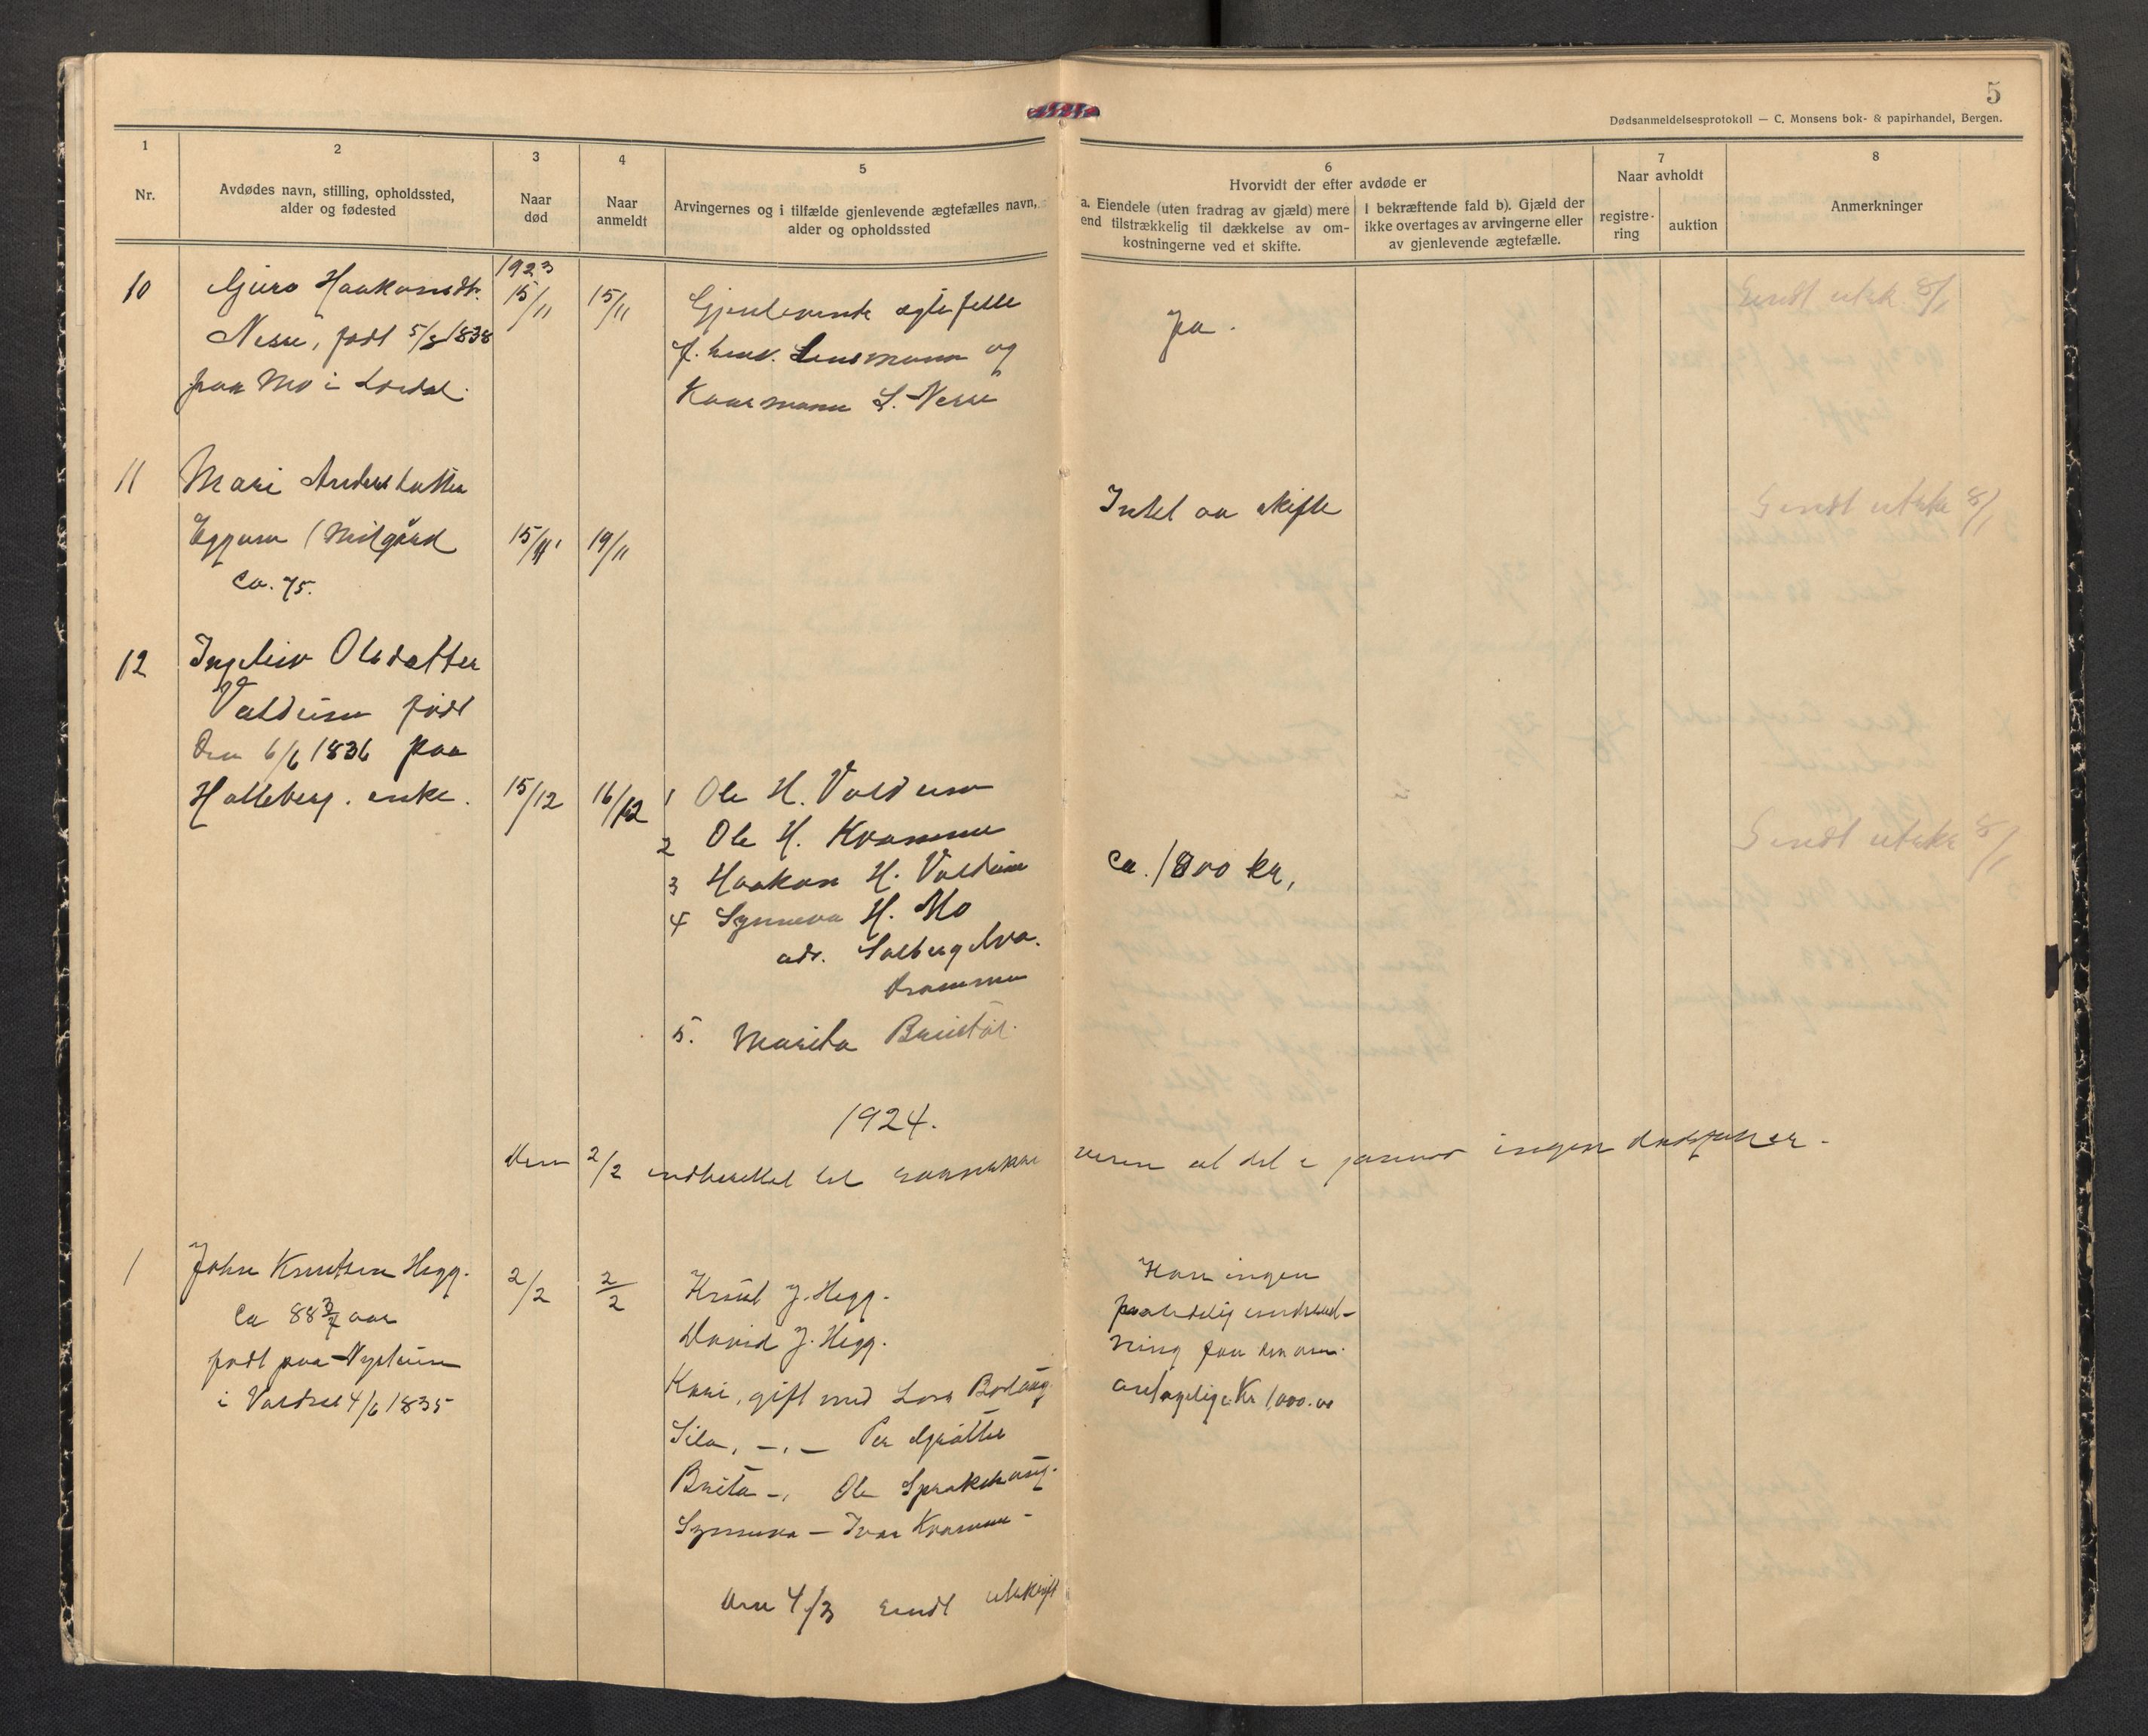 5
Dødsanmeldelsesprotokoll — C. Monsens bok- & papirhandel, Bergen.
1
Nr.
2
Avdødes navn, stilling, opholdssted,
alder og fødested
3
Naar
død
4
Naar
anmeldt
5
Arvingernes og i tilfælde gjenlevende ægtefælles navn,
alder og opholdssted
6
Hvorvidt der efter avdøde er
a. Eiendele (uten fradrag av gjæld) mere
end tilstrækkelig til dækkelse av om-
kostningerne ved et skifte.
I bekræftende fald b). Gjæld der
ikke overtages av arvingerne eller
av gjenlevende ægtefælle.
7
Naar avholdt
registre-
ring
auktion
8
Anmerkninger
10
Guro Haakonsdtr.
Nesse, født 5/3 1838
paa Mo i Lærdal.
1923
15/11
15/11
Gjenlevende ægtefelle
f. henv. Lensmann og
Kaarmann L. Nesse
Ja.
Sendt utsk. 8/1
11
Mari Andersdatter
Eggum (Midgård
Ca. 75.
15/11
19/11
Intet aa skifte
Sendt utskr 8/1
12
Ingeleiv Olsdatter
Voldum født
den 6/6 1836 paa
Halleberg. enke.
15/12
16/12
1 Ole H. Voldum
2 Ole H. Kvamme
3 Haakon H. Voldum
4 Synneva H. Mo
adr. Solbergelva.
Drammen
5. Marita Bruistøl.
Ca. 1800 kr,
Sendt utskr 8/1
1924.
Den 2/2 indberettet til sorenskriveren at det i januar ingen dødsfall er.
1
John Knutsen Hegg.
Ca 88 3/4 aar
født paa Nystuen
i Valdres 4/6 1835
2/2
2/2
Knut J. Hegg.
David J. Hegg.
Kari, gift med Lars Borlaug
Sila, -"- Per Grøtte
Brita -" Ole Sprakehaug.
Synneva - Ivar Kvamme -
Kan ingen
paalidelig
ning faa
antagelig Kr 1,000.00
Den 4/3 sendt utskrift